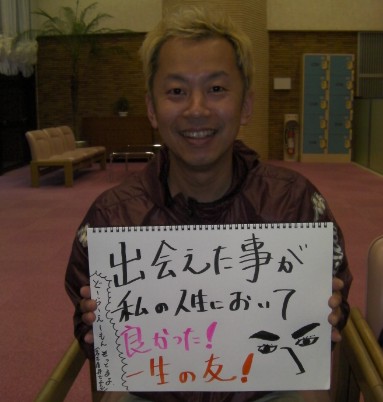 出会えた事が
私の人生において
良かった！
一生の友！